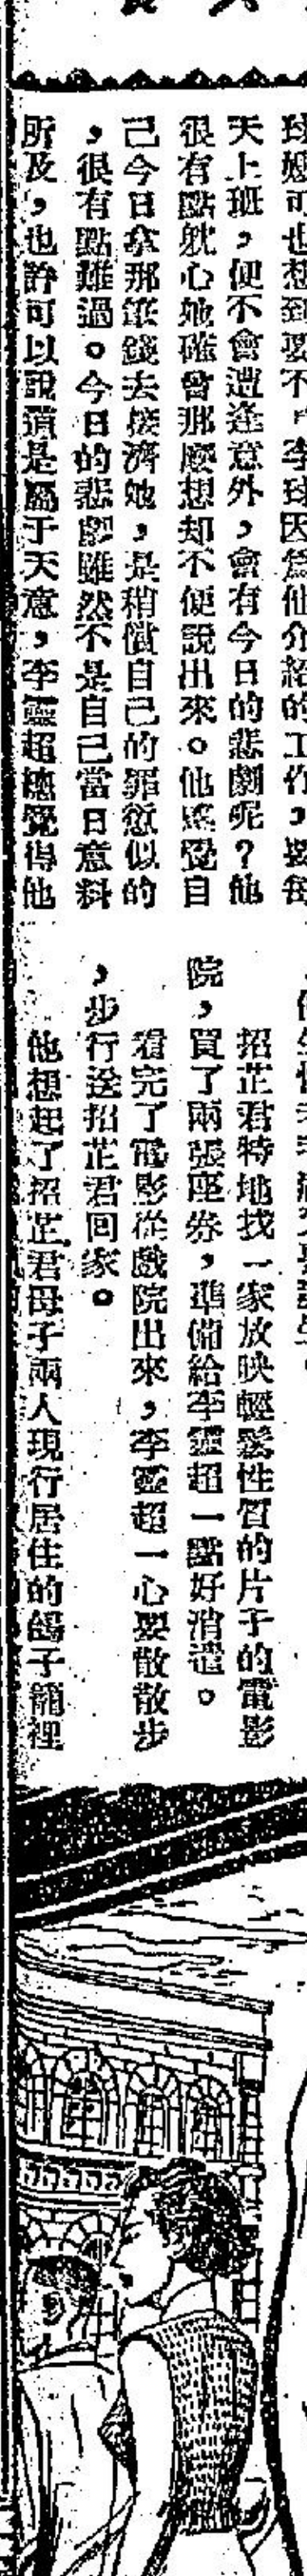 球嫂可也想到要不，李球因爲他介紹的工作，要每
天上班，便不會遭逢意外，會有今日的悲劇呢？他
很有點躭心她確曾那麽想却不便說出來。他感覺自
己今日拿那筆錢去接濟她，是稍償自己的罪愆似的
，很有點難過。今日的悲劇雖然不是自己當日意料
所及，也許可以說這是屬于天意，李靈超總覺得他
招芷君特地找一家放映輕鬆性質的片子的電影
院，買了兩張座券，準備給李靈超一點好消遣。
看完了電影從戲院出來，李靈超一心要散散步
，步行送招芷君回家。
他想起了招芷君母子兩人現行居住的鴿子籠裡